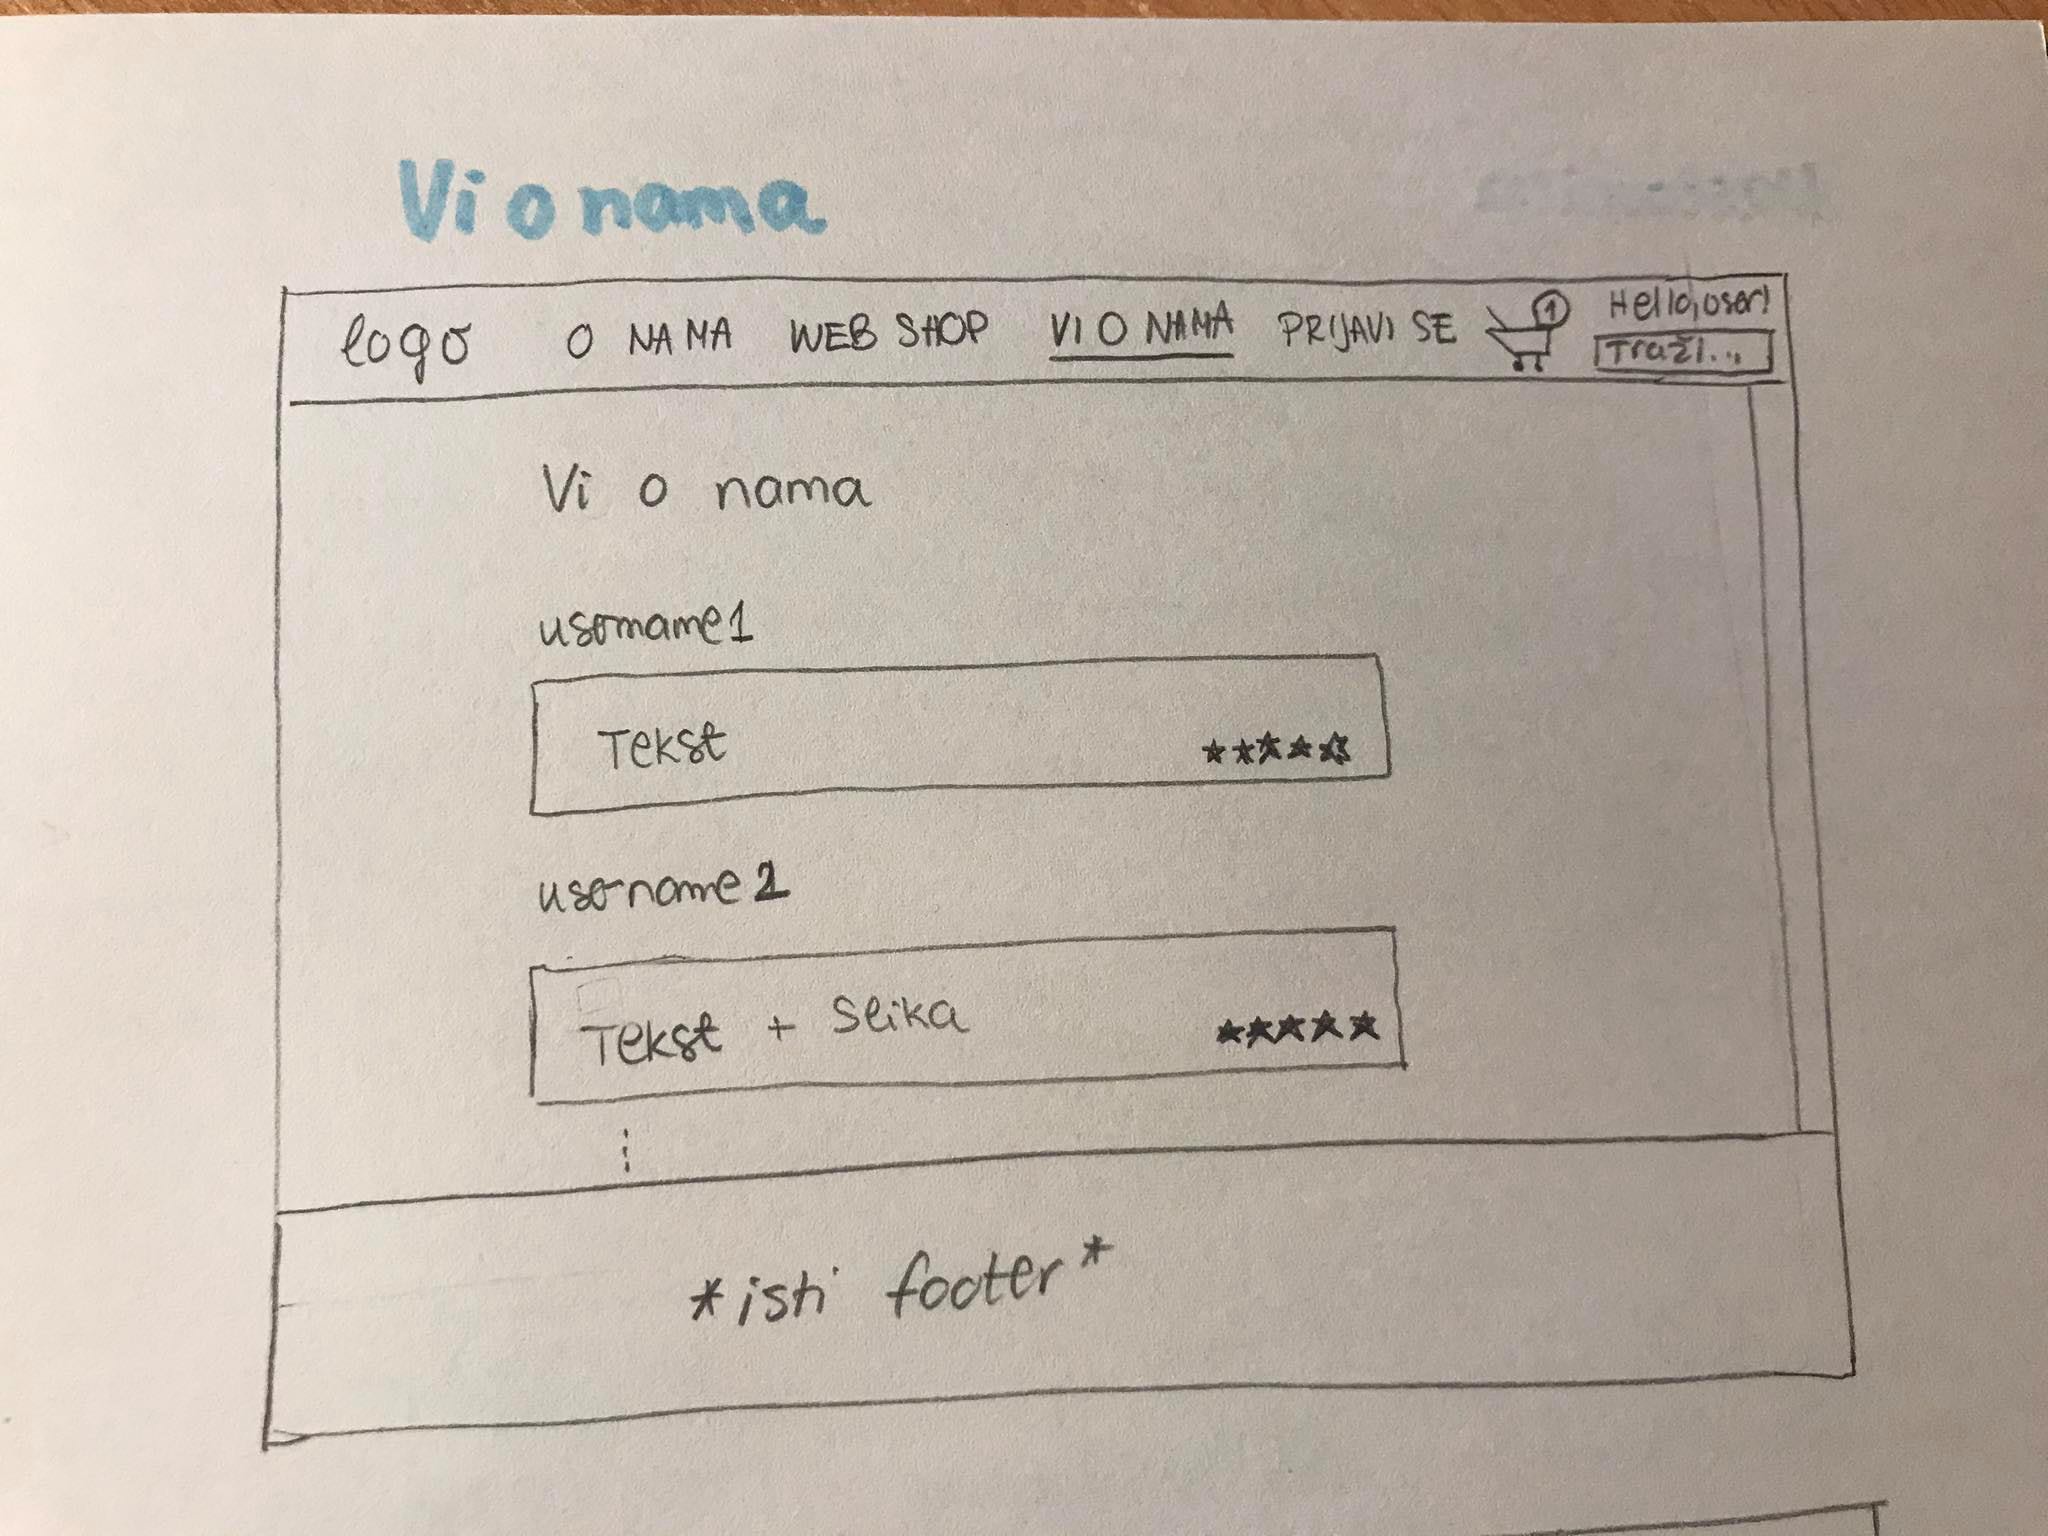 Vi o nama
logo O NAMA WEB SHOP VI O NAMA PRIJAVI SE 1 Hello, user!
Traži...
Vi o nama
username1
Tekst ★★★★☆
username2
Tekst + slika ★★★★★
*isti footer*